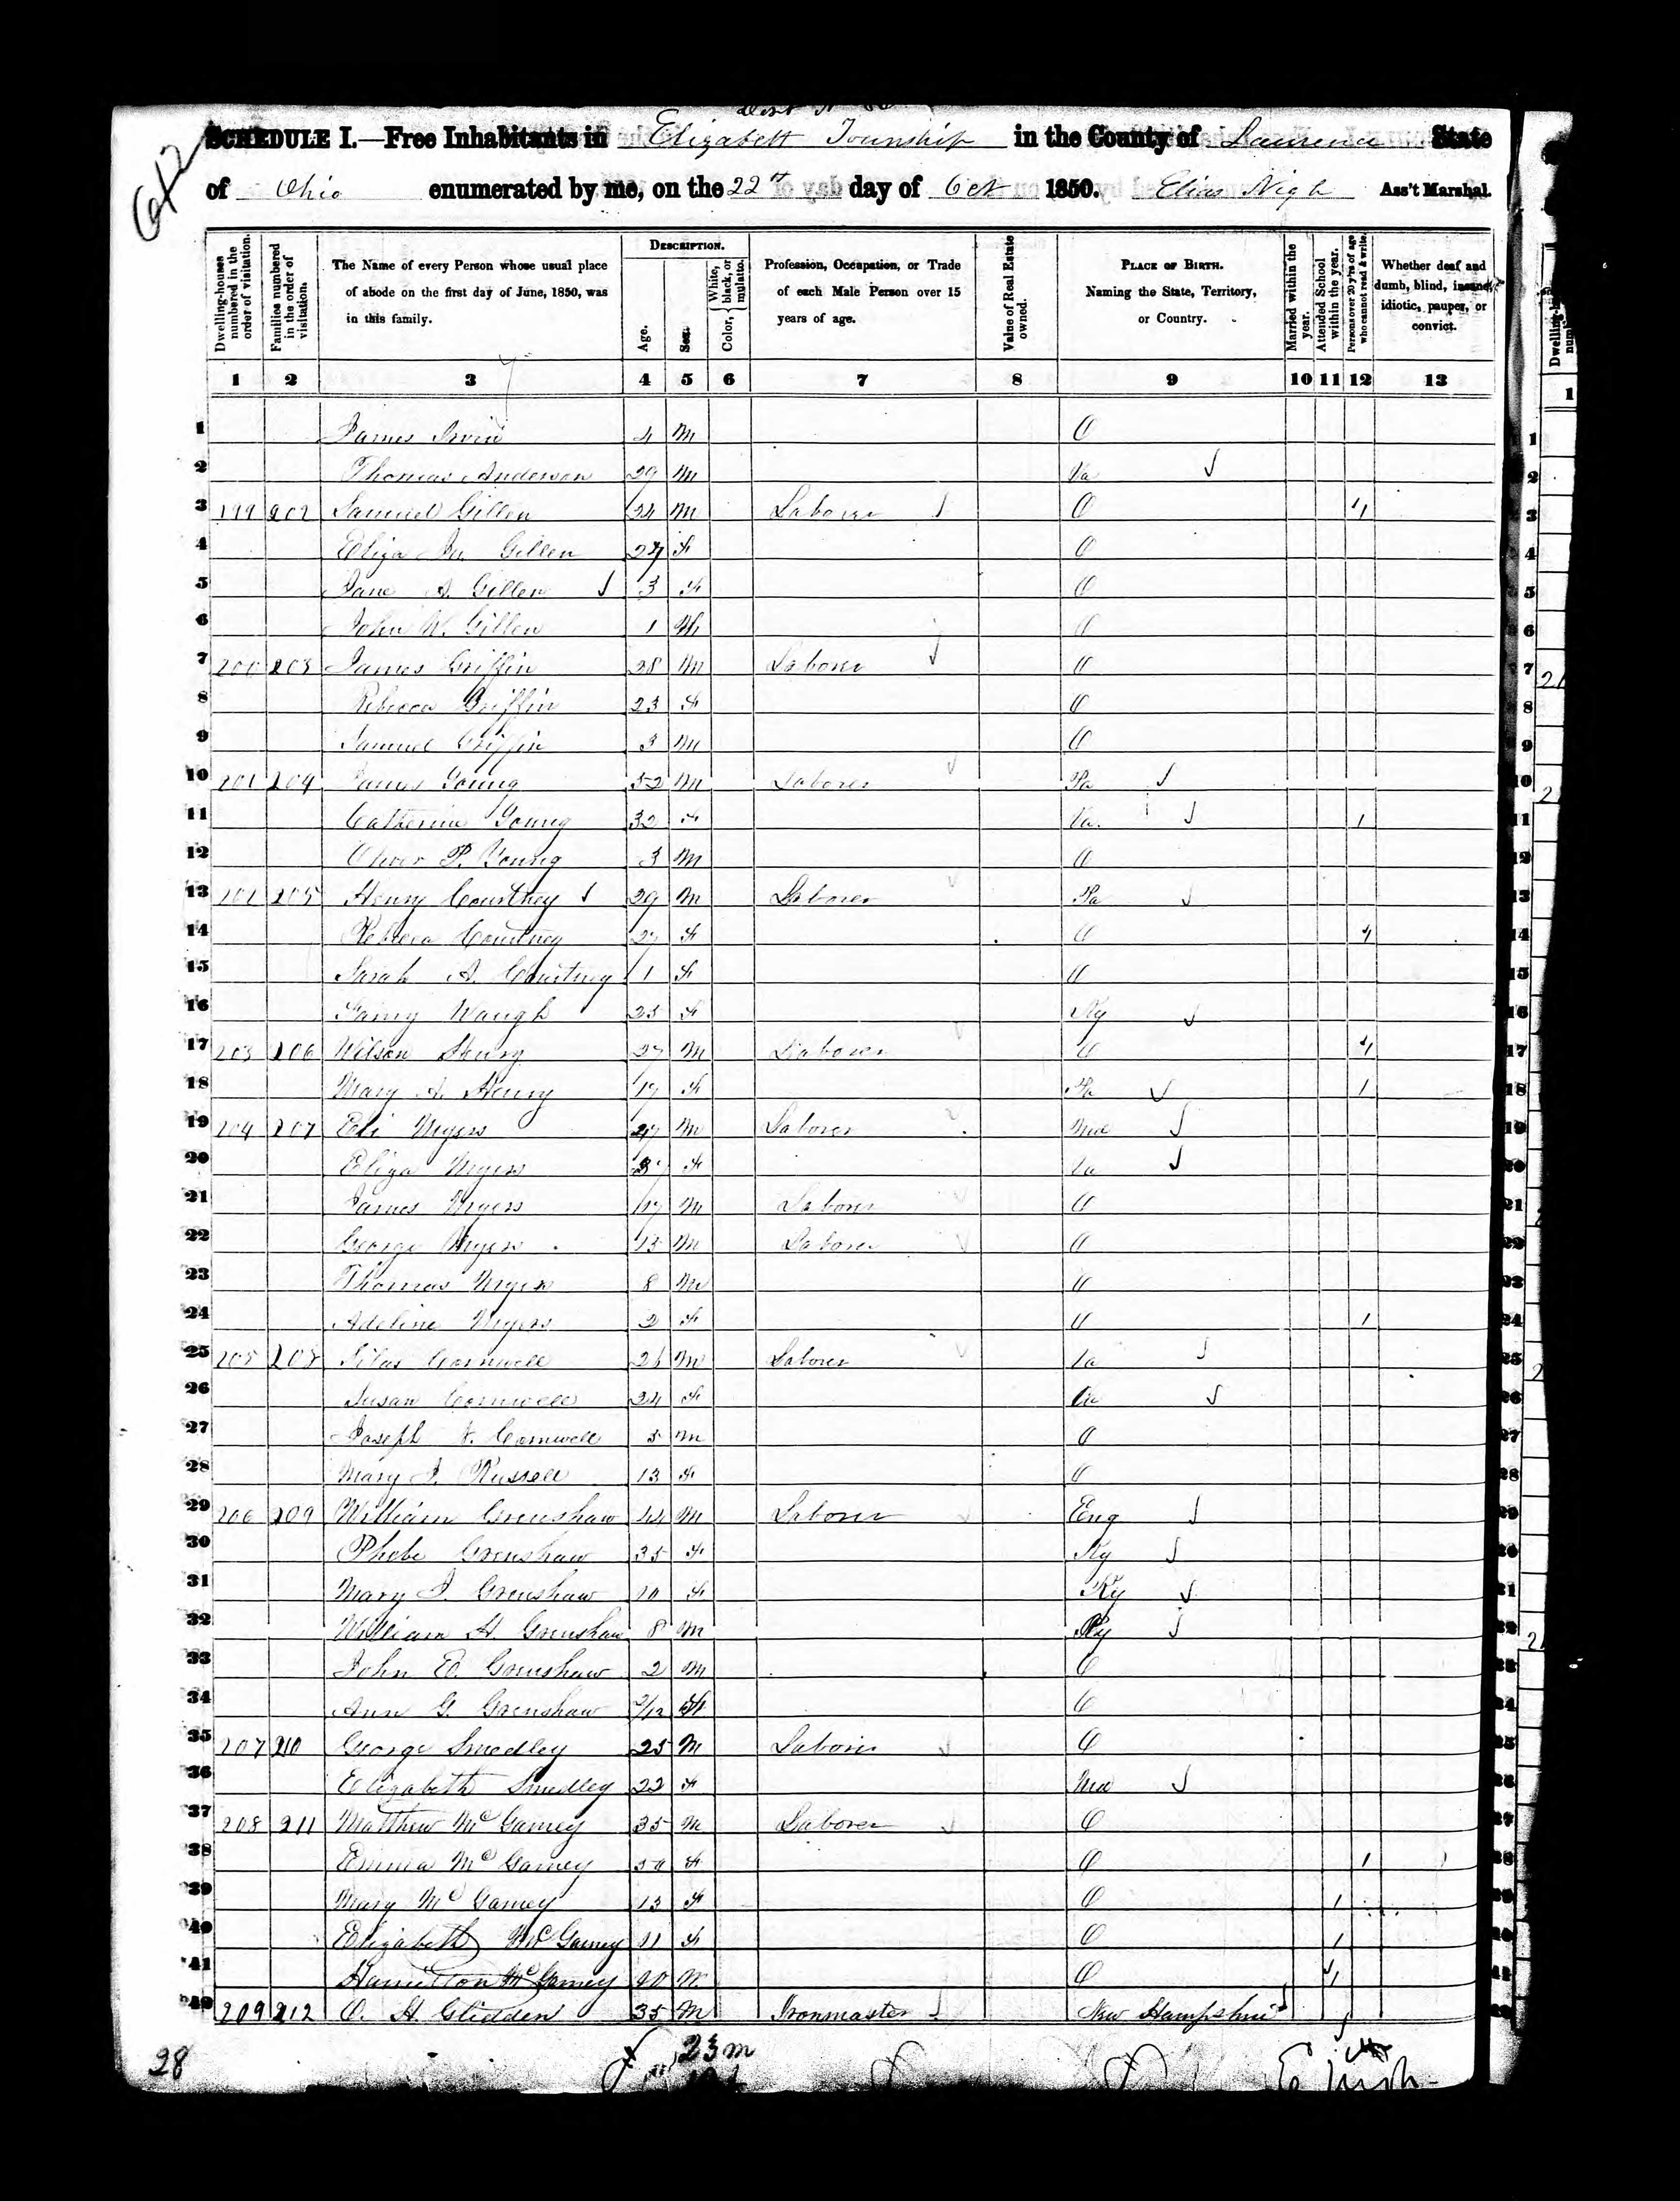 SCHEDULE I.—Free Inhabitants in Elizabeth Township in the County of Lawrence State
of Ohio enumerated by me, on the 22d day of Oct 1850. Elias Nigh Ass't Marshal.
Dwelling-houses numbered in the order of visitation.
Families numbered in the order of visitation.
The Name of every Person whose usual place of abode on the first day of June, 1850, was in this family.
DESCRIPTION.
Age.
Sex.
Color, White, black, or mulatto.
Profession, Occupation, or Trade of each Male Person over 15 years of age.
Value of Real Estate owned.
PLACE OF BIRTH. Naming the State, Territory, or Country.
Married within the year.
Attended School within the year.
Persons over 20 y'rs of age who cannot read & write.
Whether deaf and dumb, blind, insane, idiotic, pauper, or convict.
1 2 3 4 5 6 7 8 9 10 11 12 13
1 James Irvin 4 M O
2 Thomas Anderson 29 M Va
3 199 202 Samuel Gillen 24 M Laborer O 1
4 Eliza Gillen 27 F O
5 Jane A. Gillen 3 F O
6 John W. Gillen 1 M O
7 200 203 James Griffin 28 M Laborer O
8 Rebecca Griffin 23 F O
9 Samuel Griffin 3 M O
10 201 204 James Young 52 M Laborer Pa
11 Catherine Young 32 F Va. 1
12 Oliver P. Young 3 M O
13 202 205 Henry Courtney 29 M Laborer Pa
14 Rebecca Courtney 27 F O 1
15 Sarah A. Courtney 1 F O
16 Fanny Waugh 25 F Ky
17 203 206 Wilson Henry 27 M Laborer O 1
18 Mary A. Henry 19 F Pa 1
19 204 207 Eli Myers 47 M Laborer Md
20 Eliza Myers 37 F Va
21 James Myers 17 M Laborer O
22 George Myers 15 M Laborer O
23 Thomas Myers 8 M O
24 Adeline Myers 2 F O 1
25 205 208 Silas Cornwell 26 M Laborer Va
26 Susan Cornwell 24 F Va
27 Joseph Cornwell 5 M O
28 Mary J. Russell 13 F O
29 206 209 William Grenshaw 44 M Laborer Eng
30 Phebe Grenshaw 35 F Ky
31 Mary J. Grenshaw 10 F Ky
32 William H. Grenshaw 8 M Ky
33 John E. Grenshaw 2 M O
34 Ann G. Grenshaw 2/12 F O
35 207 210 George Smedley 25 M Laborer O
36 Elizabeth Smedley 22 F Md
37 208 211 Matthew McGarvey 35 M Laborer O
38 Emma McGarvey F O 1
39 Mary McGarvey 13 F O 1
40 Elizabeth McGarvey 11 F O 1
41 Hamilton McGarvey 20 M O 1
42 209 212 O. H. Glidden 35 M Ironmaster New Hampshire
28
23 m